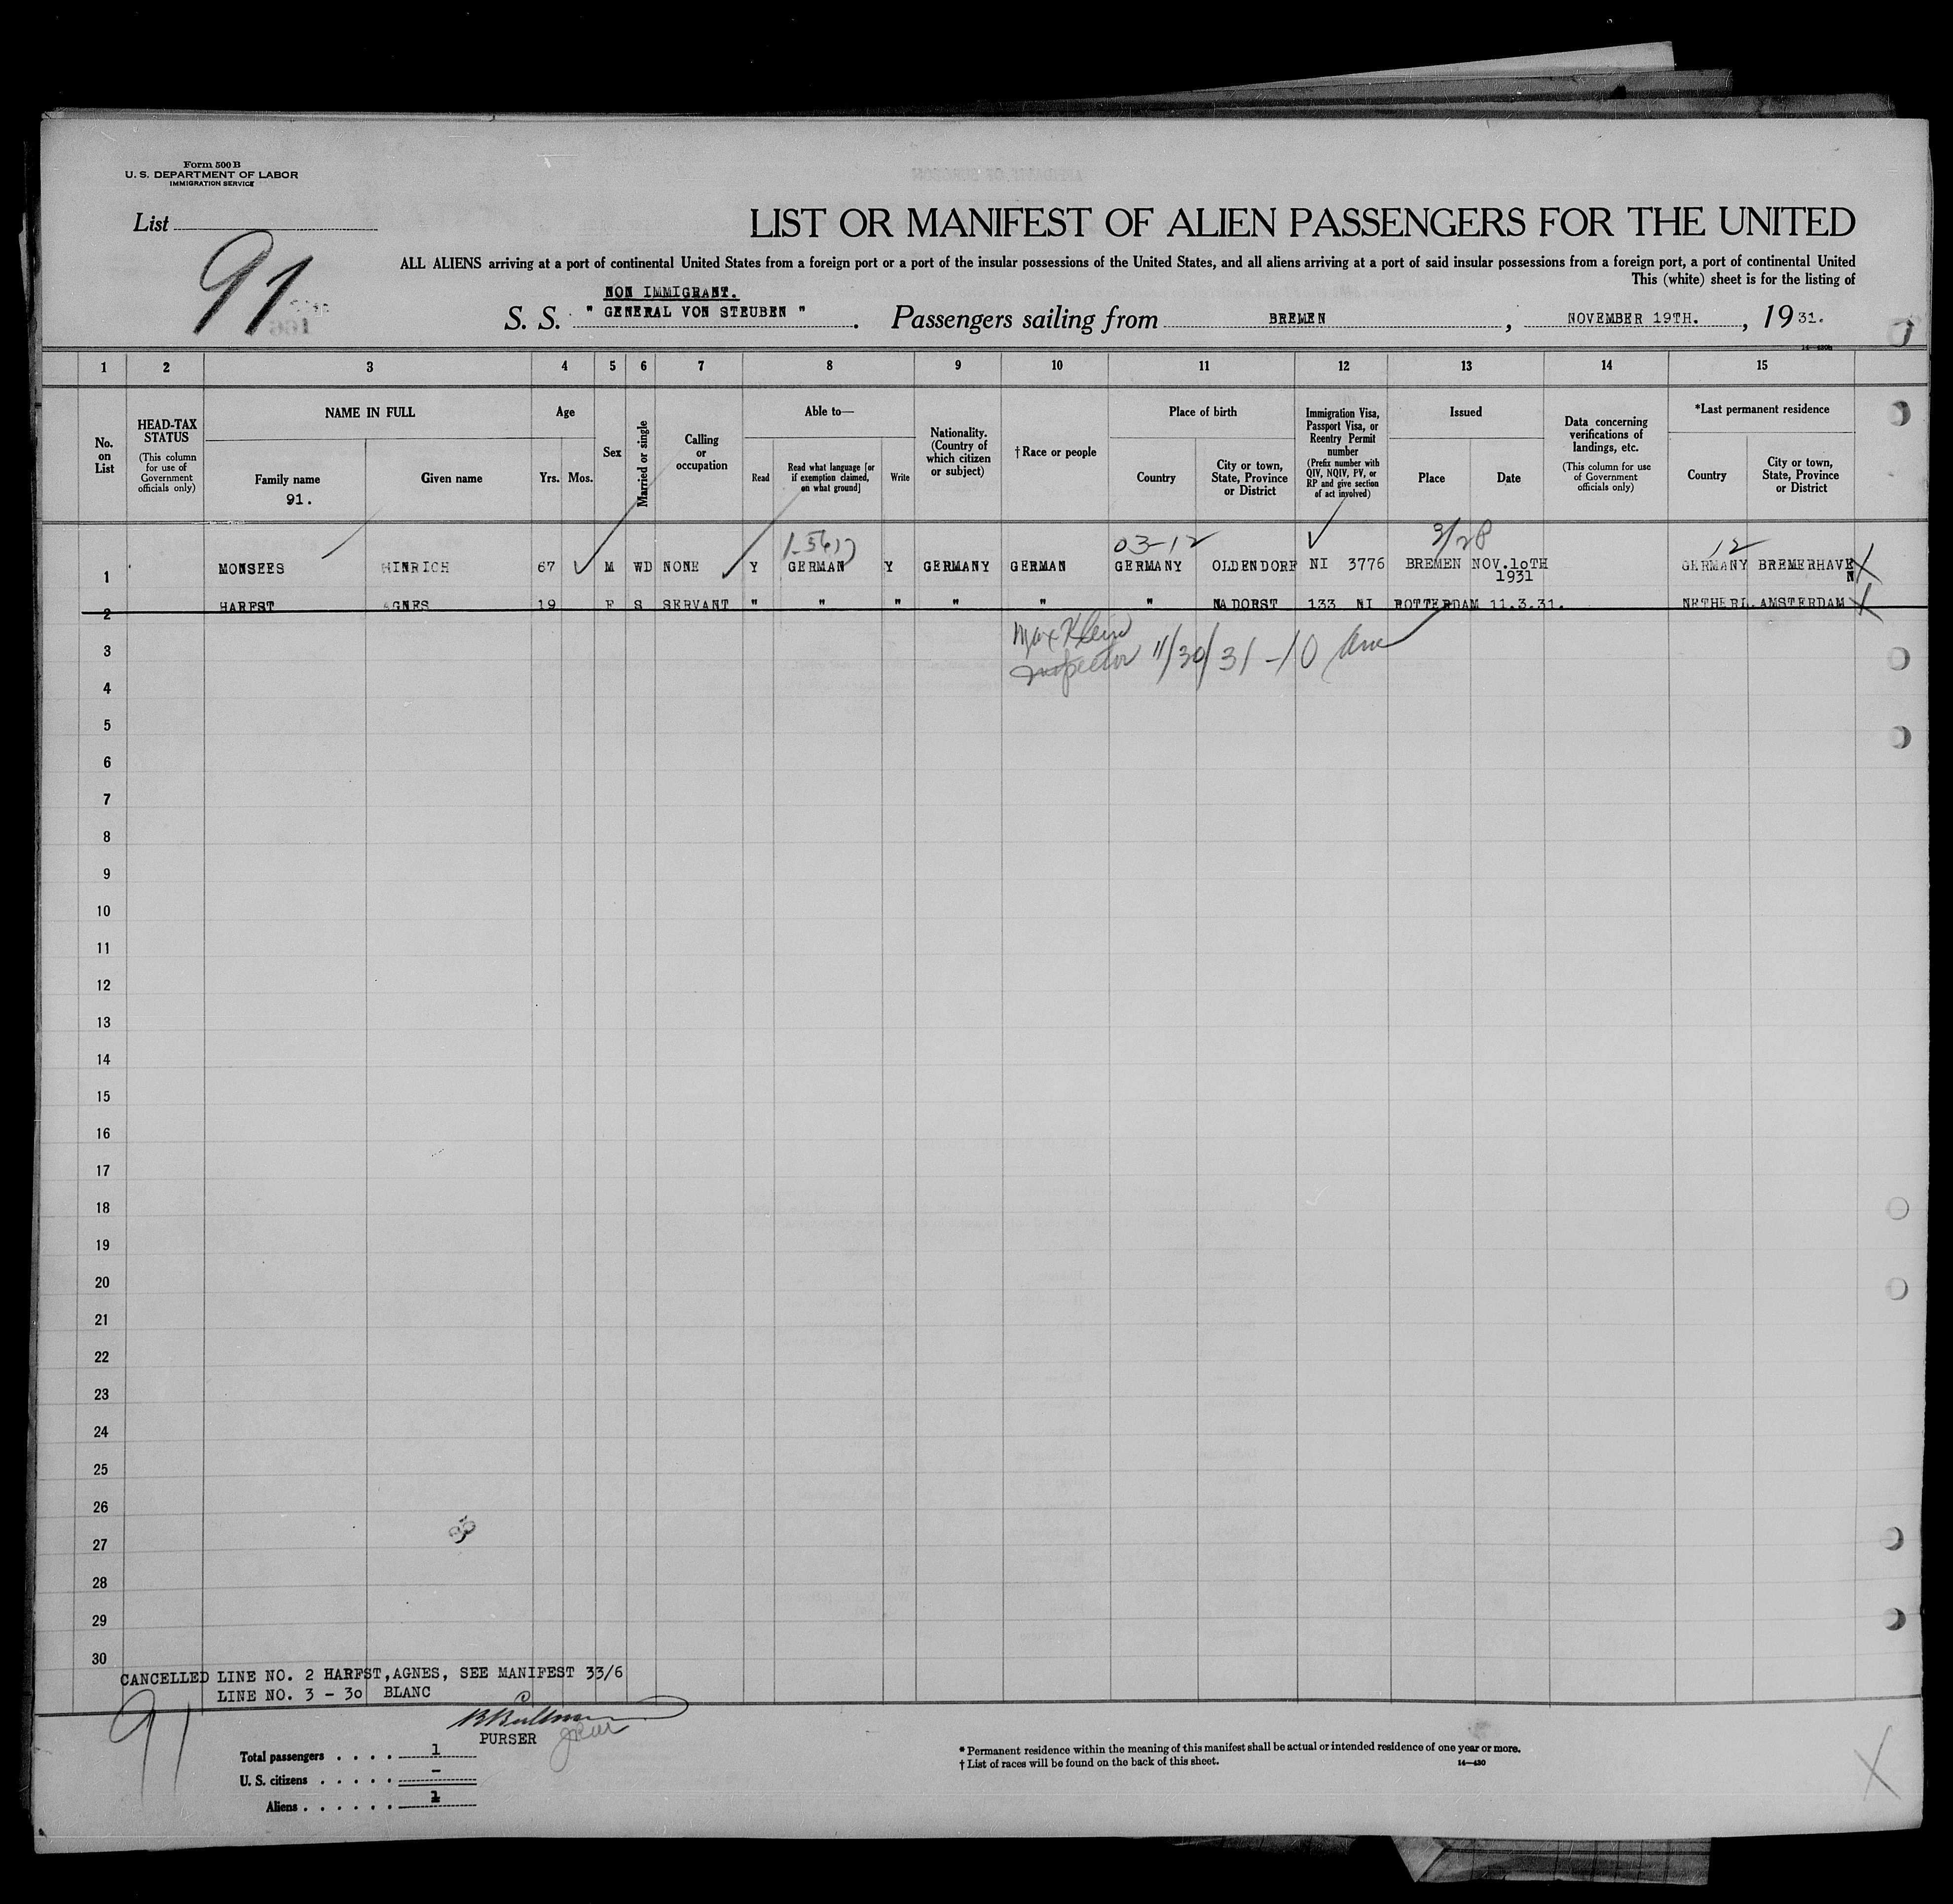 Form 500 B
U. S. DEPARTMENT OF LABOR
IMMIGRATION SERVICE
List
91
LIST OR MANIFEST OF ALIEN PASSENGERS FOR THE UNITED
ALL ALIENS arriving at a port of continental United States from a foreign port or a port of the insular possessions of the United States, and all aliens arriving at a port of said insular possessions from a foreign port, a port of continental United
This (white) sheet is for the listing of
NON IMMIGRANT.
S. S. " GENERAL VON STEUBEN ". Passengers sailing from BREMEN, NOVEMBER 19TH., 1931.
1 2 3 4 5 6 7 8 9 10 11 12 13 14 15
No. on List
HEAD-TAX STATUS
(This column for use of Government officials only)
NAME IN FULL
Family name
91.
Given name
Age
Yrs. Mos.
Sex
Married or single
Calling or occupation
Able to—
Read
Read what language [or if exemption claimed, on what ground]
Write
Nationality. (Country of which citizen or subject)
†Race or people
Place of birth
Country
City or town, State, Province or District
Immigration Visa, Passport Visa, or Reentry Permit number
(Prefix number with QIV, NQIV, PV, or RP and give section of act involved)
Issued
Place
Date
Data concerning verifications of landings, etc.
(This column for use of Government officials only)
*Last permanent residence
Country
City or town, State, Province or District
03-12 3/28 12
1 MONSEES HINRICH 67 M WD NONE Y GERMAN Y GERMANY GERMAN GERMANY OLDENDORF NI 3776 BREMEN NOV.10TH 1931 GERMANY BREMERHAVEN
2 HARFST AGNES 19 F S SERVANT " " " " " " NADORST 133 NI ROTTERDAM 11.3.31. NETHERL. AMSTERDAM
Max Klein
3
Inspector 11/30/31 -10 am
4
5
6
7
8
9
10
11
12
13
14
15
16
17
18
19
20
21
22
23
24
25
26
27
28
29
30
CANCELLED LINE NO. 2 HARFST,AGNES, SEE MANIFEST 33/6
LINE NO. 3 - 30 BLANC
91
PURSER
Total passengers . . . . 1
U. S. citizens . . . . . -
Aliens . . . . . . 1
* Permanent residence within the meaning of this manifest shall be actual or intended residence of one year or more.
† List of races will be found on the back of this sheet.
14—430